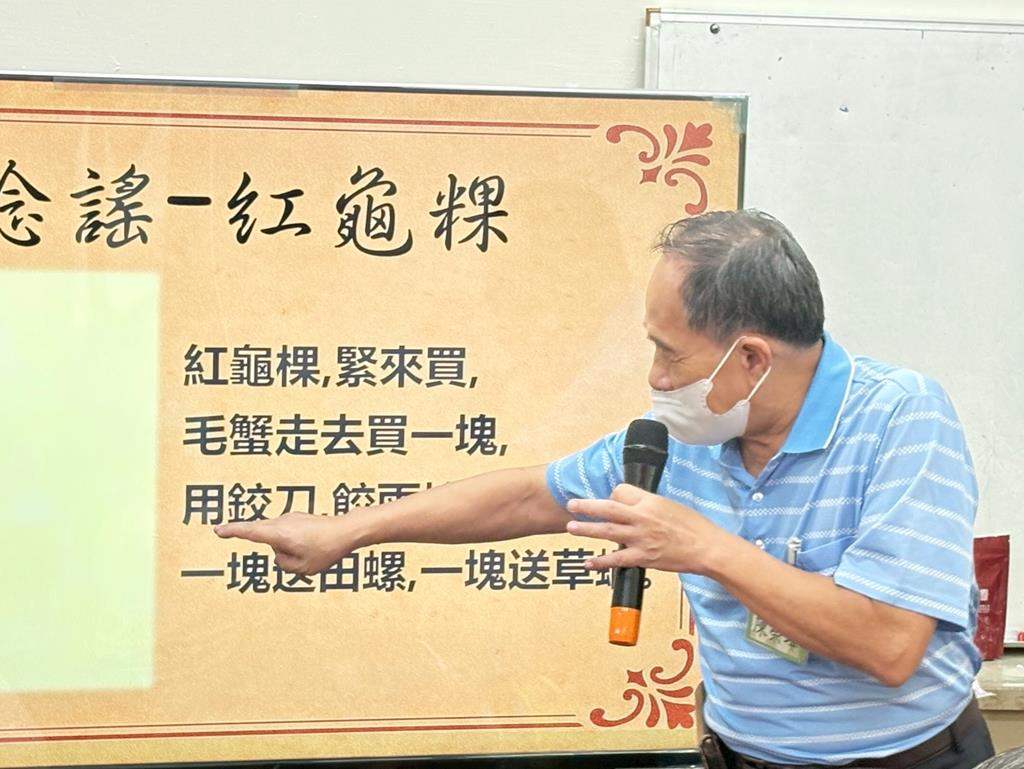 念謠-紅龜粿
紅龜棵,緊來買,
毛蟹走去買一塊,
用鉸刀,餃兩
一塊送田螺,一塊送草